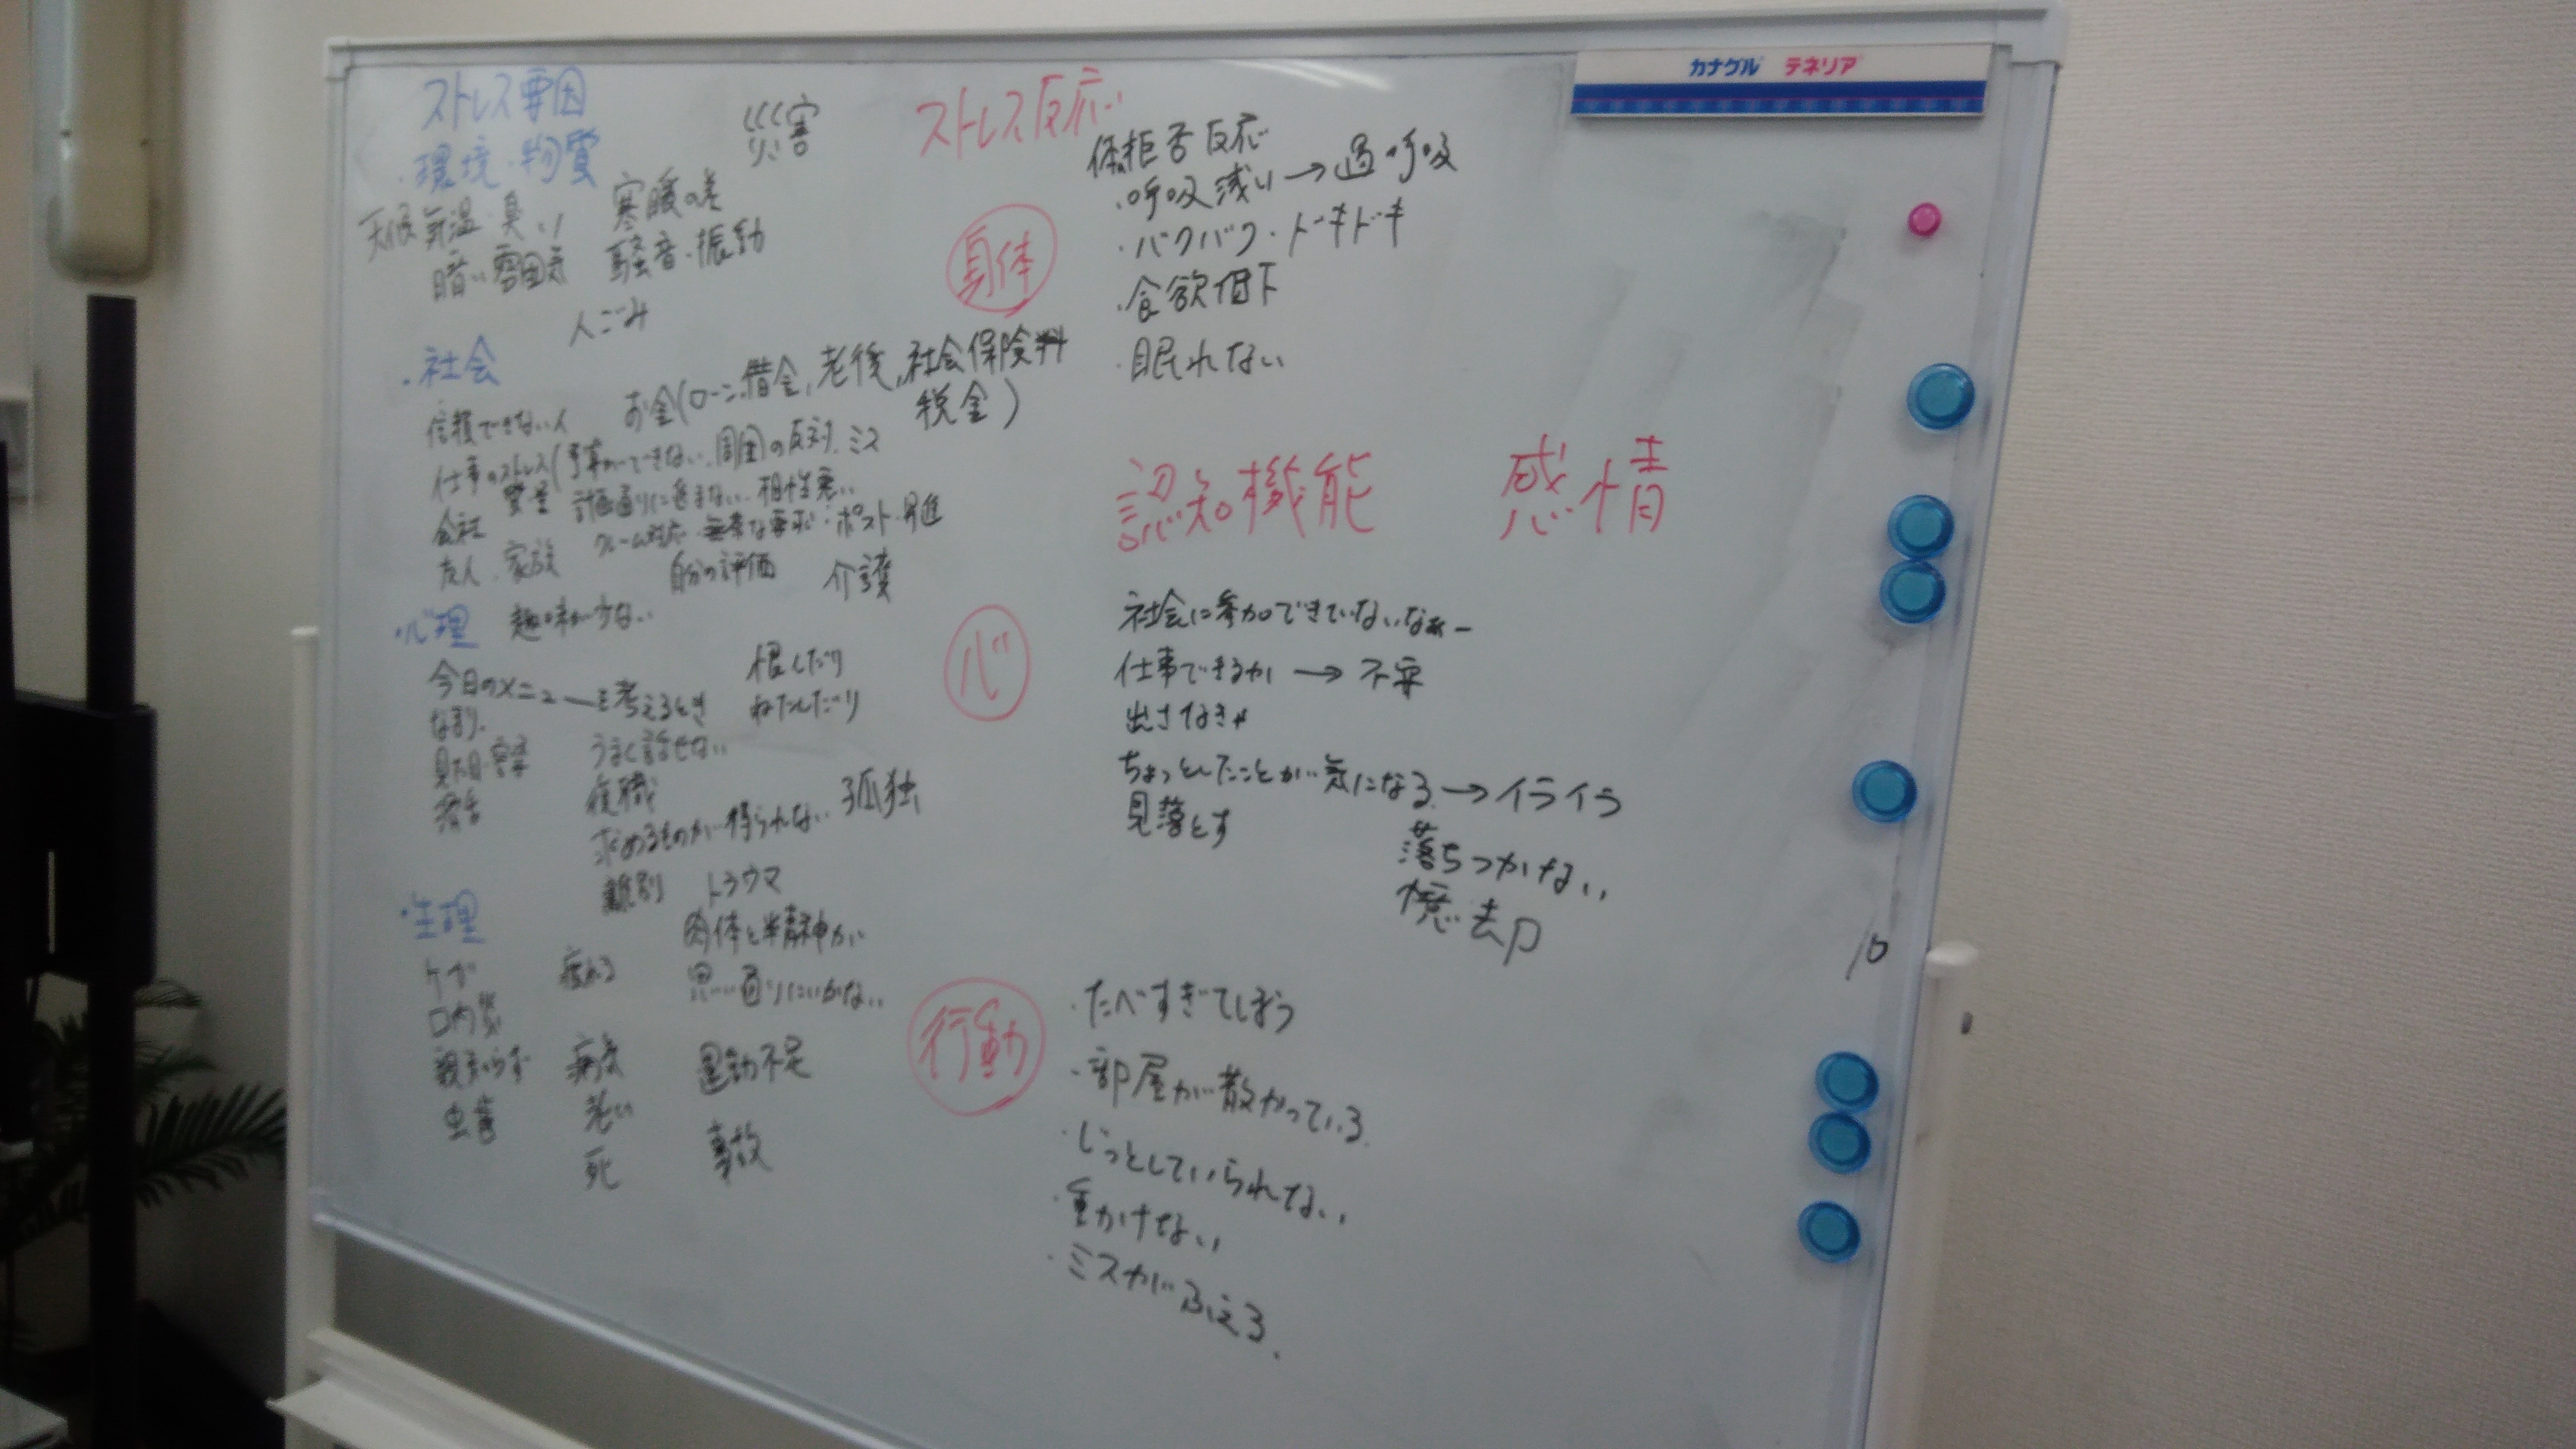 カナグル テネリア
ストレス要因
・環境・物質
災害
天候 気温・臭い
寒暖の差
暗い雰囲気
騒音・振動
人ごみ
・社会
信頼できない人
お金(ローン、借金、老後、社会保険料
税金)
仕事のストレス(予算ができない、周囲の反対、ミス
計画通りに進まない、相性悪い
会社
クレーム対応・無茶な要求・ポスト・昇進
友人、家族
自分の評価
介護
・心理
趣味が少ない
今日のメニューを考えるとき
恨んだり
ねたんだり
なまり、
見た目・容姿
うまく話せない
復職
求めるものが得られない
孤独
離別
トラウマ
・生理
肉体と精神が
思い通りにいかない
ケガ
疲れる
口内炎
親知らず
病気
運動不足
虫歯
老い
死
事故
ストレス反応
身体
体拒否反応
・呼吸浅い→過呼吸
・バクバク・ドキドキ
・食欲低下
・眠れない
認知機能 感情
心
社会に参加できていないなぁー
仕事できるか → 不安
出さなきゃ
ちょっとしたことが気になる → イライラ
見落とす
落ちつかない
億劫
行動
・たべすぎてしまう
・部屋が散かっている
・じっとしていられない
・動かけない
・ミスがふえる